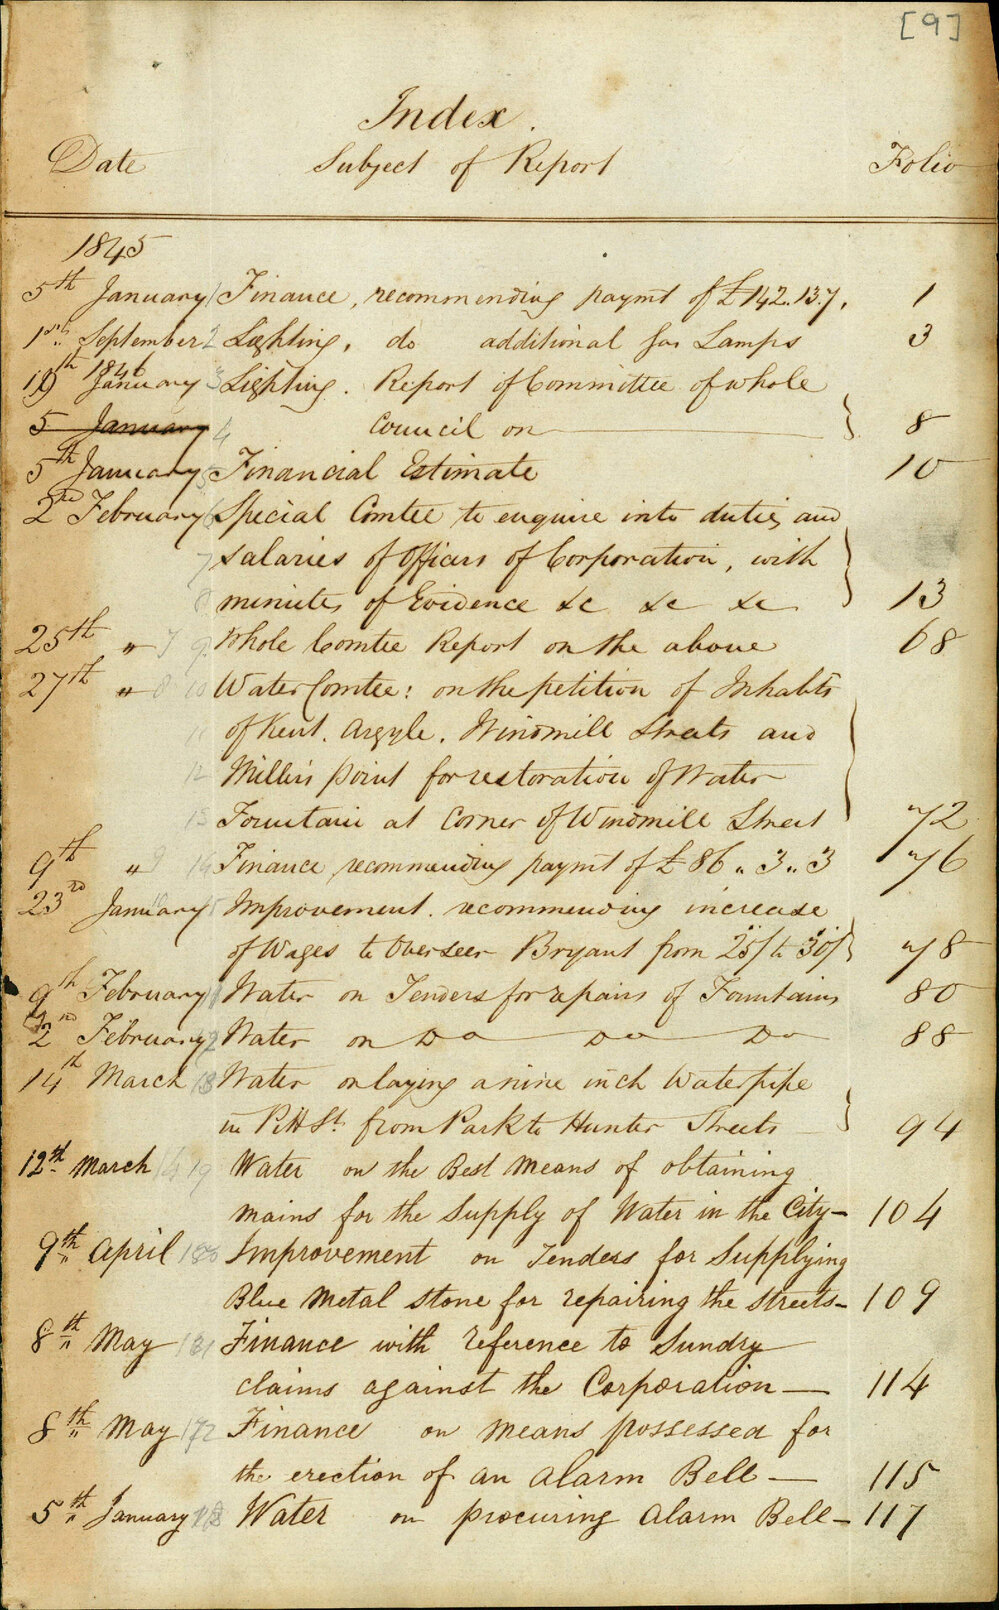 [9]
Index.
Date Subject of Report Folio
1845
5th January 1 Finance, recommending paymt of £142.13.7. 1
1st September 2 Lighting, do additional Gas Lamps 3
1846
19th January 3 Lighting. Report of Committee of whole
5 January 4 Council on 8
5th January 5 Financial Estimate 10
2nd February 6 Special Comtee to enquire into duties and
7 Salaries of Officers of Corporation, with
8 minutes of Evidence &c &c &c 13
25th " 7 9 Whole Comtee Report on the above 68
27th " 8 10 Water Comtee: on the petition of Inhabts
11 of Kent. Argyle. Windmill Streets and
12 Millers point for restoration of Water
13 Fountain at Corner of Windmill Street 72
9th " 9 14 Finance, recommending paymt of £86 " 3 " 3 76
23rd January 10 15 Improvement. recommending increase
of Wages to Overseer Bryant from 25/ to 30/ 78
9th February 11 Water on Tenders for repairs of Fountains 80
2nd February 12 Water on Do Do Do 88
14th March 13 Water on laying a nine inch Water pipe
in Pitt St. from Park to Hunter Streets 94
12th March 14 19 Water on the Best Means of obtaining
mains for the Supply of Water in the City — 104
9th April Improvement on Tenders for Supplying
Blue Metal Stone for repairing the streets — 109
8th May Finance with reference to Sundry
claims against the Corporation — 114
8th May 17 Finance on means possessed for
the erection of an Alarm Bell — 115
5th January 18 Water on procuring Alarm Bell — 117